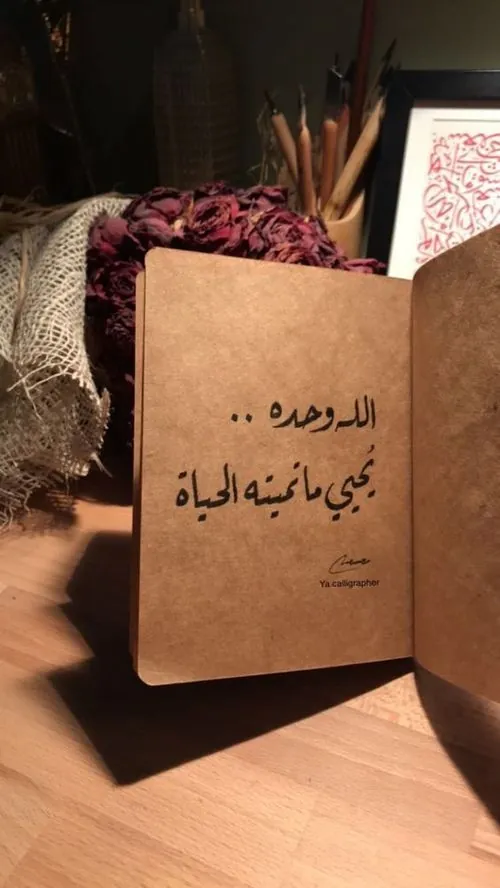 الله وحده ..
يُحيي ما تميته الحياة
Ya.calligrapher